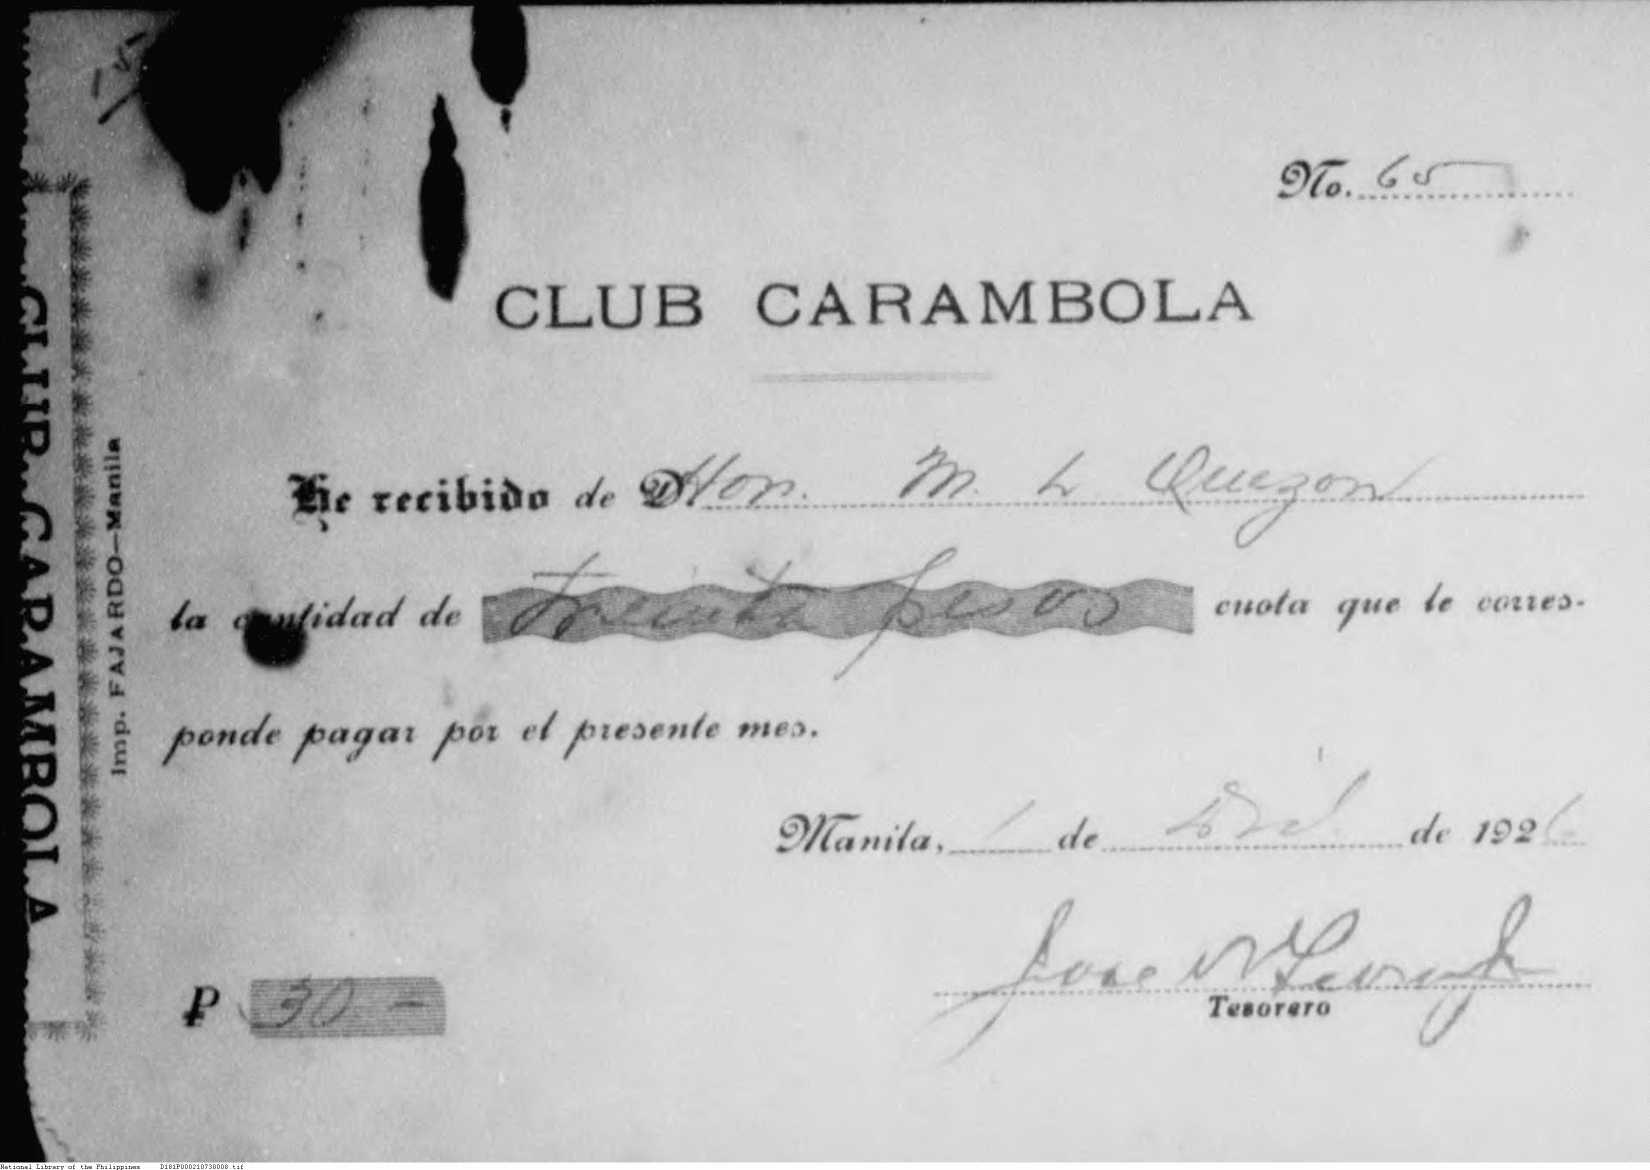 No. 65
CLUB CARAMBOLA
He recibido de D Hon. M. L. Quezon
la cantidad de Treinta pesos cuota que le corres-
ponde pagar por el presente mes.
Manila, 1 de de 1926
Jose
Tesorero
₱ 30.-
CLUB CARAMBOLA
Imp. FAJARDO—Manila
National Library of the Philippines D181P000210738008.tif